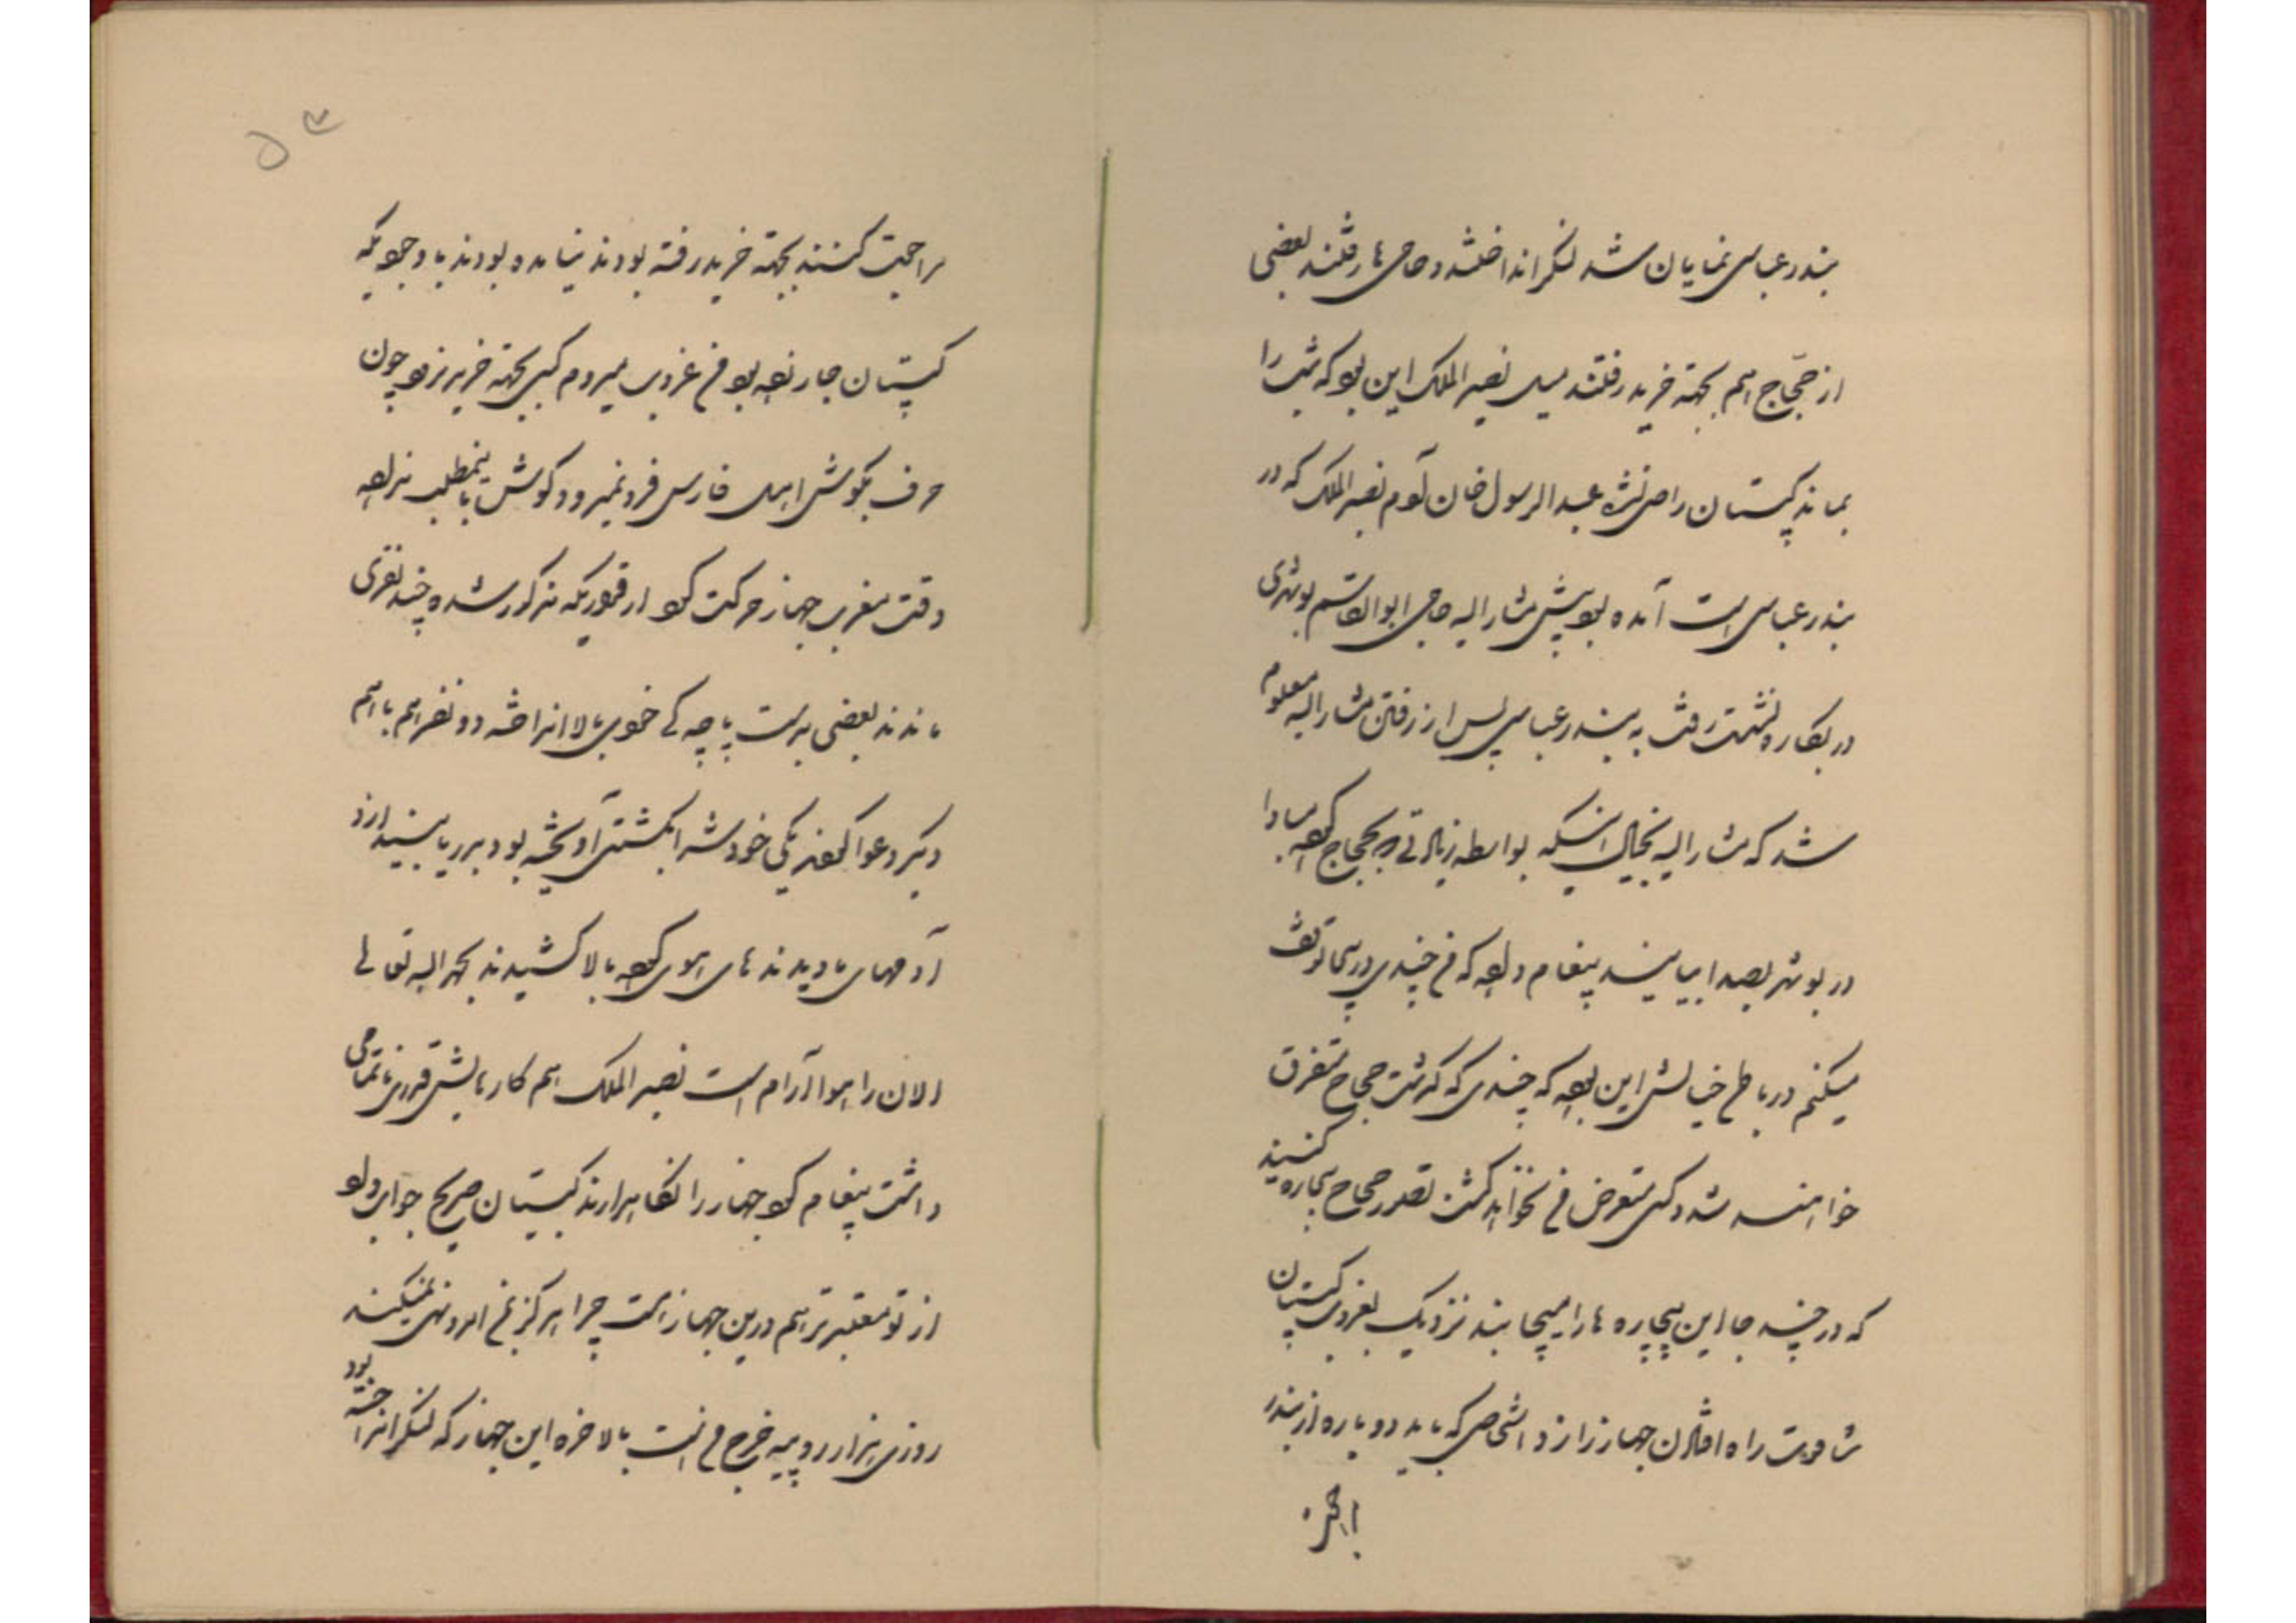 بندر عباسی نمایان شد لنگر انداختند و حاجی ها رفتند بعضی
از حجّاج هم بجهة خرید رفتند میل نصیر الملک این بود که شب را
بماند کپیتان راضی نشد عبد الرسول خان آدم نصیر الملک که در
بندر عباسی است آمده بود پیش مشار الیه حاجی ابوالقاسم بوشهری
در بقاره نشست رفت به بندر عباسی پس از رفتن مشار الیه معلوم
شد که مشار الیه بخیال اینکه بواسطه زیادتی که بحجاج کرده مبادا
در بوشهر بصدا بیایند پیغام داده که من چندی در بمبئی توقف
میکنم در باطن خیالش این بوده که چندی که گذشت حجاج متفرق
خواهند شد و کسی متعرض من نخواهد گشت تصور حجاج بیچاره کنید
که در چند جا این بیچاره ها را میچاپند نزدیک بغروب کپیتان
شافوت راه افتادن جهاز را زد اشخاصی که باید دوباره از بندر
۵۳
مراجعت کنند بجهة خرید رفته بودند نیامده بودند با وجودیکه
کپیتان جار زده بود من غروب میروم کسی بجهة خرید نرود چون
حرف بگوش اهل فارس فرو نمیرود گوش باینمطلب نداده
وقت مغرب جهاز حرکت کرد از قراریکه مذکور شده چند نفری
ماندند بعضی بدست پاچه گی خود را بالا انداخته دو نفر هم با هم
دیگر دعوا کردند یکی خودش را بکشتی آویخته بود بدریا بیندازد
آدمهای ما دیدند های هوی کرده بالا کشیدند بحمد الله تعالی
الان را هوا آرام است نصیر الملک هم کار بابش قرنتین تمامی
داشت پیغام کرد جهاز را نگاهدارند کپیتان صریح جواب داد
از تو معتبرتر هم درین جهاز است چرا هرگز بمن امر و نهی نمیکند
روزی هزار روپیه خرج من است بالاخره این جهاز که لنگر انداخته بود